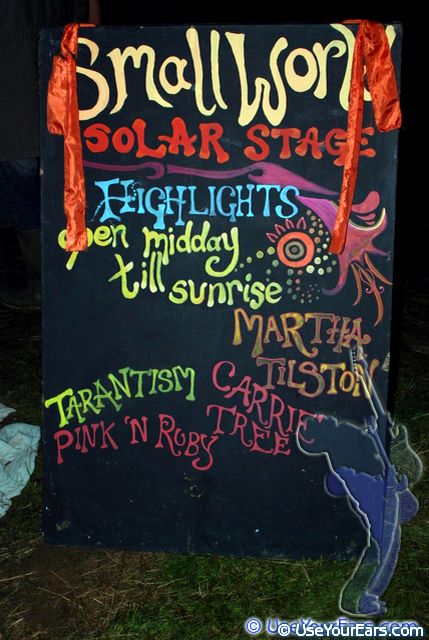 Small World
SOLAR STAGE
HIGHLIGHTS
open midday
till sunrise
MARTHA
TILSTON
TARANTISM
CARRIE
TREE
PINK 'N RUBY
© UseYourEars.com
© UseYourEars.com